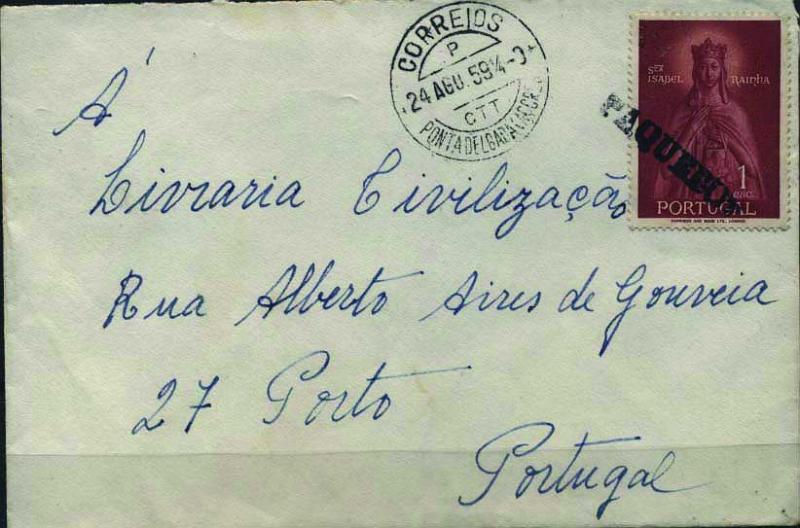 CORREIOS
P
24 AGO. 59 14-0
CTT
PONTA DELGADA
STA ISABEL RAINHA
PAQUEBOT
1
ESC.
PORTUGAL
Á
Livraria Civilização
Rua Alberto Aires de Gouveia
27 Porto
Portugal